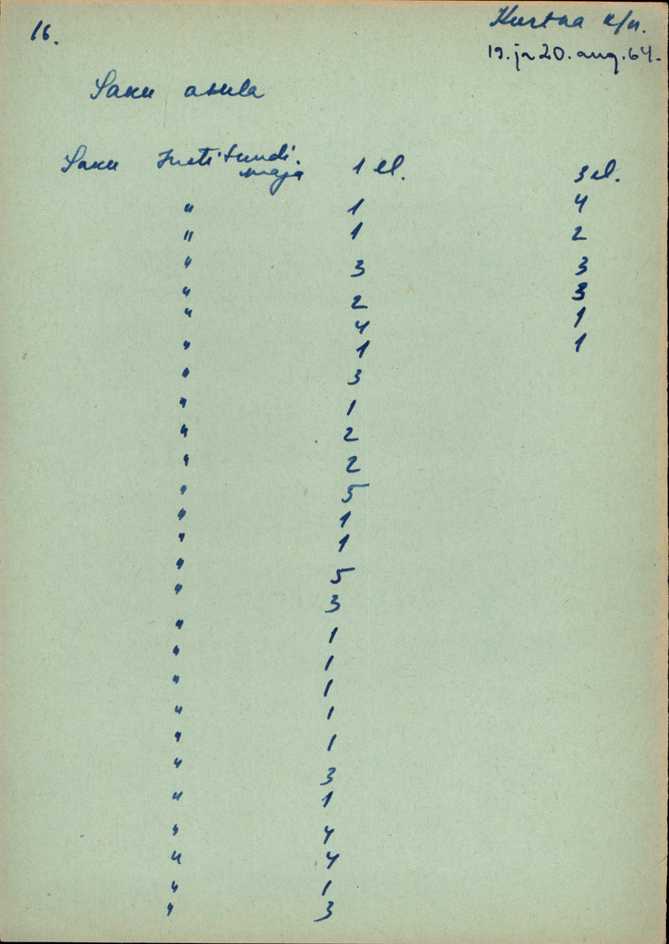 16.
Kurtna k/n.
19. ja 20. aug. 64.
Saku asula
Saku Instituudi. maja 1 el. 3 el.
" 1 4
" 1 2
" 3 3
" 2 3
" 4 1
" 1 1
" 3
" 1
" 2
" 2
" 5
" 1
" 1
" 5
" 3
" 1
" 1
" 1
" 1
" 1
" 3
" 1
" 4
" 4
" 1
" 3